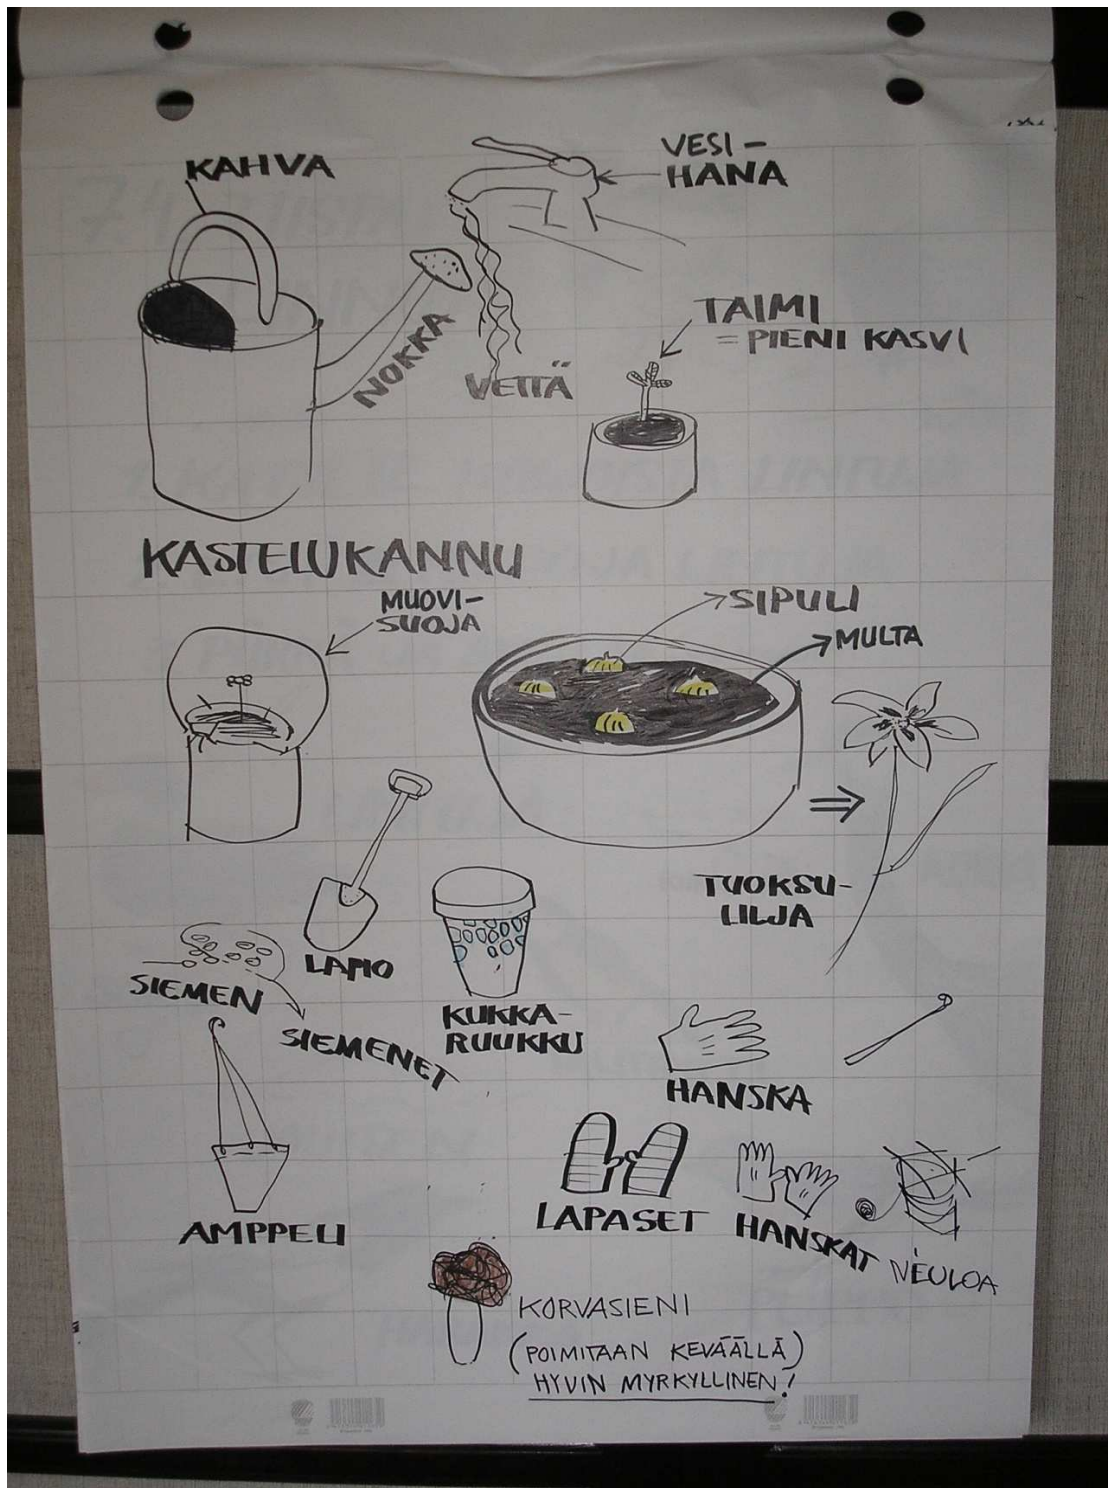 KAHVA
VESI-
HANA
NOKKA
VETTÄ
TAIMI
= PIENI KASVI
KASTELUKANNU
MUOVI-
SUOJA
SIPULI
MULTA
TUOKSU-
LILJA
LAPIO
SIEMEN
SIEMENET
KUKKA-
RUUKKU
HANSKA
AMPPELI
LAPASET
HANSKAT
NEULOA
KORVASIENI
(POIMITAAN KEVÄÄLLÄ)
HYVIN MYRKYLLINEN!